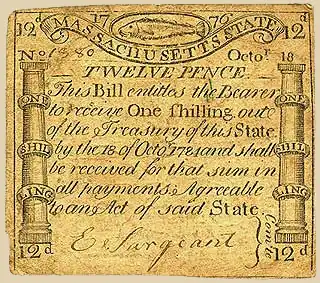 12d 17 76 12d
MASSACHUSETTS STATE
No 1880 Octor. 18
TWELVE PENCE.
This Bill entitles the Bearer
to receive One Shilling out
of the Treasury of this State
by the 18 of Octor. 1784 and shall
be received for that sum in
all payments Agreeable
to an Act of said State.
E Sargeant
Comtee
ONE
SHIL
LING
12d
ONE
SHIL
LING
12d